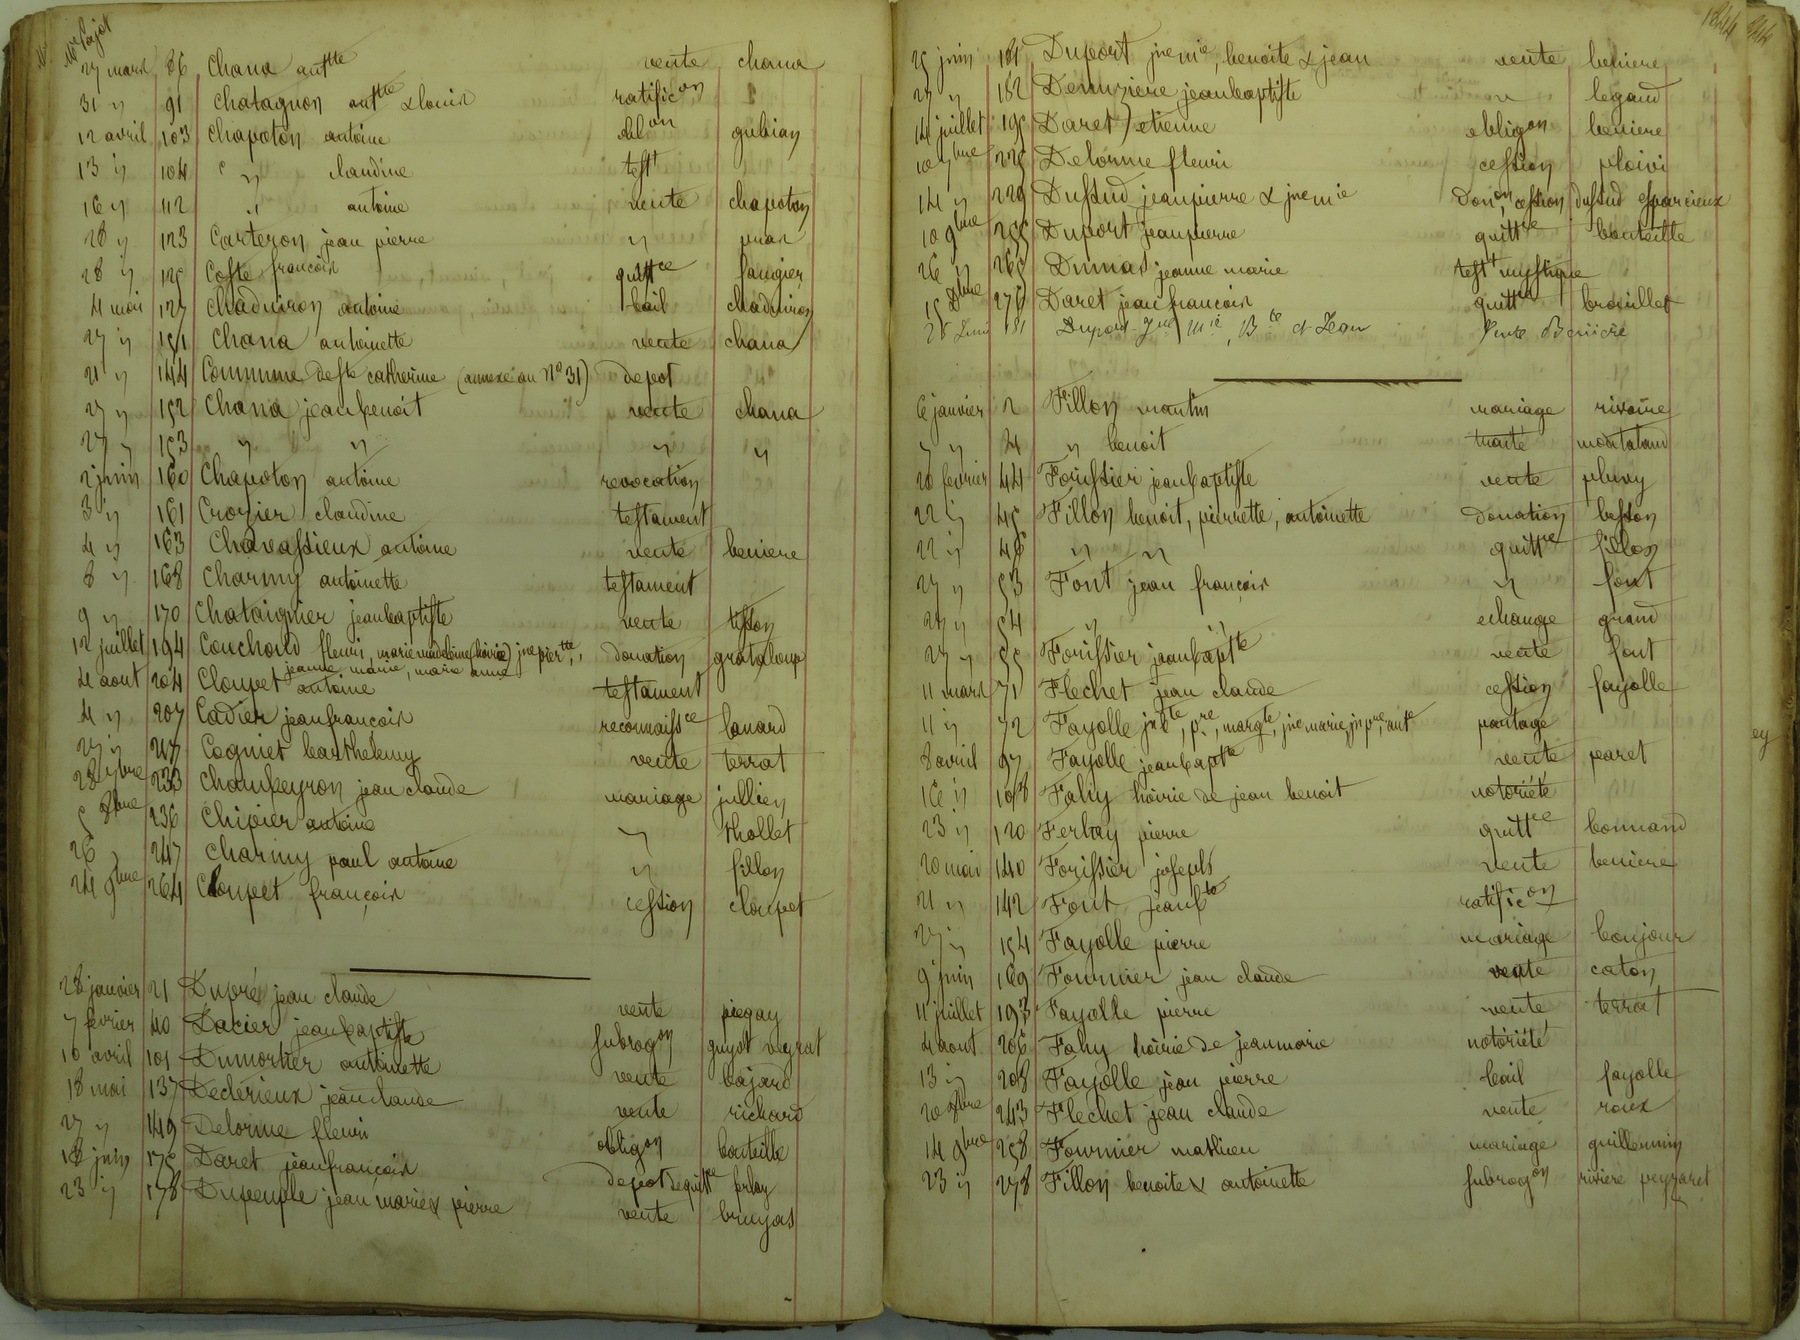 Me Pajot
27 mars 86 Chana antte vente chana
31 " 91 Chatagnon antte & louis ratificon
12 avril 103 Chapoton antoine oblon gubian
13 " 104 " " claudine test
16 " 112 " antoine vente chapoton
28 " 123 Carteron jean pierre "
28 " 125 Coste françois quittce faugier
4 mai 127 Chaduiron antoine bail chaduiron
27 " 151 Chana antoinette vente chana
21 " 144 Commune de ste catherine (annexe au No 31) depot
27 " 152 Chana jean benoit vente chana
27 " 153 " " " "
2 juin 160 Chapoton antoine revocation
3 " 161 Crozier claudine testament
4 " 163 Chavassieux antoine vente beniere
8 " 168 Charmy antoinette testament
9 " 170 Chataignier jean baptiste vente tisson
12 juillet 194 Couchoud fleuri, marie madeleine (hoirie) jne pierrtte, donation grataloup
jeanne marie, marie anne
4 aout 204 Cloupet antoine testament
4 " 207 Cadier jean françois reconnaissce banard
27 " 217 Cogniet barthelemy vente terrat
28 7bre 233 Chambeyron jean claude mariage jullien
5 8bre 236 Chipier antoine " thollet
26 " 247 Charmy paul antoine " fillon
24 9bre 264 Cloupet françois cession cloupet
28 janvier 21 Dupré jean claude vente piegay
7 fevrier 40 Dacier jean baptiste subrogon guyot veyrat
10 avril 101 Dumortier antoinette vente bajard
18 mai 137 Declerieux jean claude vente richard
27 " 149 Delorme fleuri obligon bouteille
18 juin 175 Daret jean françois depot de quittce
23 " 178 Dupeuple jean marie & pierre vente bruyas
1844
25 juin 181 Duport jne mie, benoite & jean vente beniere
27 " 182 Demuziere jean baptiste " legand
14 juillet 195 Daret etienne obligon beniere
10 7bre 225 Delorme fleuri cession ploivi
14 " 229 Dussud jean pierre & jne mie Donon, cession dussud esparcieux
10 9bre 255 Duport jean pierre quittce bouteille
26 " 265 Dumas jeanne marie test mystique
15 Xbre 276 Daret jean françois quittce brouillet
25 Juin 181 Duport Jne Mie, Bte et Jean Vente Beniere
6 janvier 2 Fillon martin mariage rivoire
" " 4 " benoit traité montaland
20 fevrier 44 Forissier jean baptiste vente pluvy
22 " 45 Fillon benoit, pierrette, antoinette donation besson
22 " 46 " " quittce fillon
27 " 53 Font jean françois " font
27 " 54 " echange grand
27 " 55 Forissier jean baptte vente font
11 mars 71 Flechet jean claude cession fayolle
11 " 72 Fayolle jn bte, pre, margte, jne marie, jn pre, ante partage
8 avril 97 Fayolle jean baptte vente paret
16 " 108 Fahy hoirie de jean benoit notoriété
23 " 120 Ferlay pierre quittce bonnand
20 mai 140 Forissier joseph vente beniere
21 " 142 Font jean bte ratificon
27 " 154 Fayolle pierre mariage bonjour
9 juin 169 Fournier jean claude vente caton
11 juillet 193 Fayolle pierre vente terrat
4 aout 206 Fahy hoirie de jean marie notoriété
13 " 208 Fayolle jean pierre bail fayolle
20 8bre 243 Flechet jean claude vente roux
14 9bre 258 Fournier mathieu mariage guillermin
23 " 278 Fillon benoite & antoinette subrogon riviere peyraret